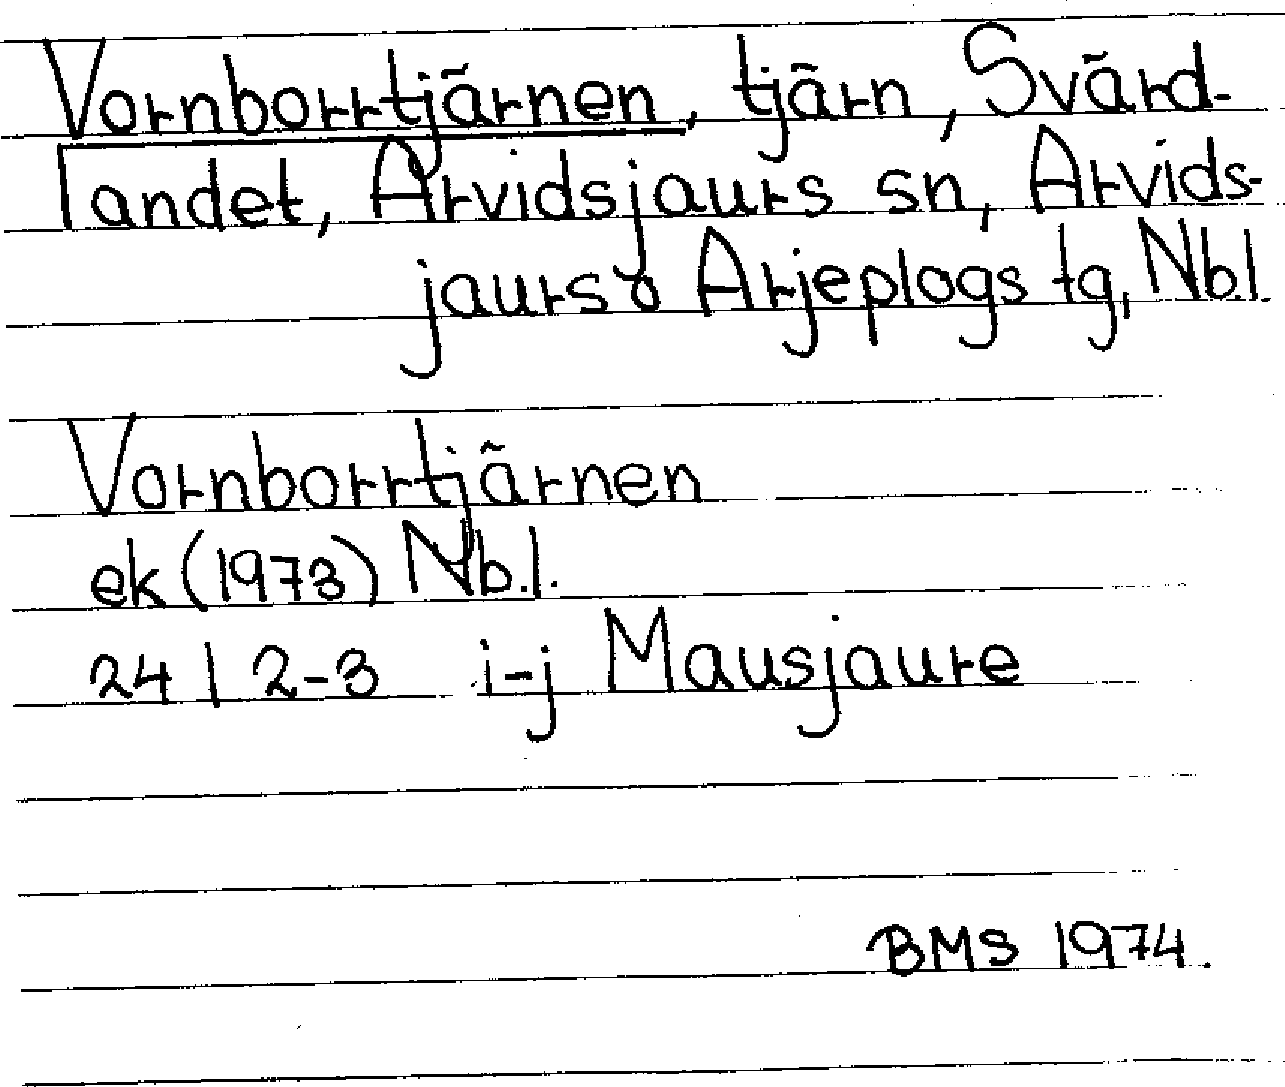 Vornborrtjärnen, tjärn, Svärd-
landet, Arvidsjaurs sn, Arvids-
jaurs o Arjeplogs tg, Nb.l.
Vornborrtjärnen
ek (1973) Nb.l.
24 I 2-3 i-j Mausjaure
BMS 1974.